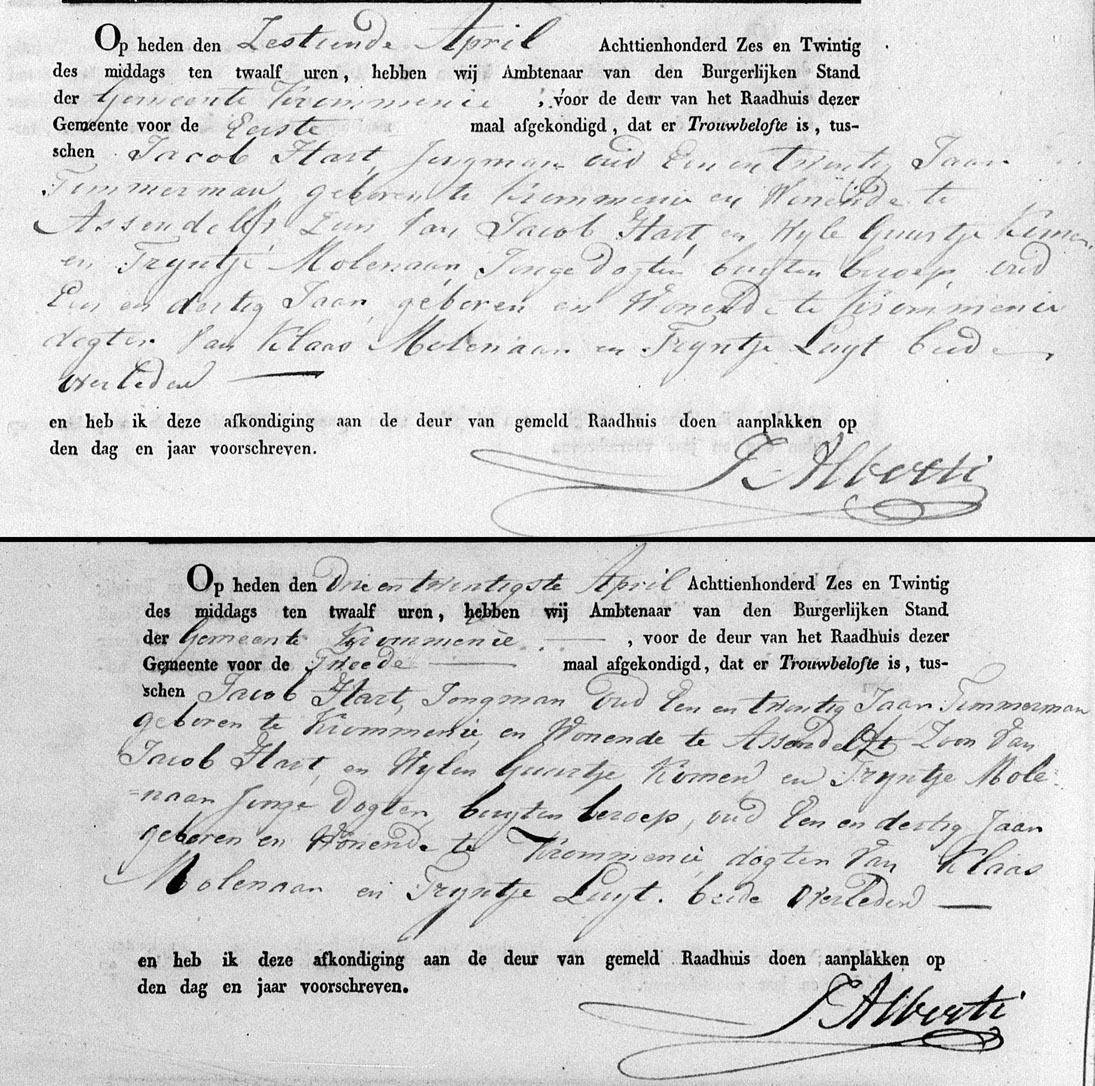 Op heden den Zestiende April Achttienhonderd Zes en Twintig
des middags ten twaalf uren, hebben wij Ambtenaar van den Burgerlijken Stand
der Gemeente Krommenie, voor de deur van het Raadhuis dezer
Gemeente voor de Eerste maal afgekondigd, dat er Trouwbelofte is, tus-
schen Jacob Hart, Jongman oud Een en twintig Jaar
Timmerman, geboren te Krommenie en Wonende te
Assendelft Zoon Van Jacob Hart, en Wyle Guurtje Komen
en Tryntje Molenaar, Jonge Dogter buyten beroep, oud
Een en dertig Jaar, geboren en Wonende te Krommenie
dogter Van Klaas Molenaar en Tryntje Luyt beide
overleden —
en heb ik deze afkondiging aan de deur van gemeld Raadhuis doen aanplakken op
den dag en jaar voorschreven.
J Alberti
Op heden den Drie en twintigste April Achttienhonderd Zes en Twintig
des middags ten twaalf uren, hebben wij Ambtenaar van den Burgerlijken Stand
der Gemeente Krommenie —, voor de deur van het Raadhuis dezer
Gemeente voor de Tweede — maal afgekondigd, dat er Trouwbelofte is, tus-
schen Jacob Hart, Jongman Oud Een en twintig Jaar Timmerman
geboren te Krommenie, en Wonende te Assendelft Zoon Van
Jacob Hart, en Wylen Guurtje Komen en Tryntje Mole=
=naar Jonge Dogter, buyten beroep, oud Een en dertig Jaar
geboren en Wonende te Krommenie, dogter Van Klaas
Molenaar en Tryntje Luyt. beide Overleden —
en heb ik deze afkondiging aan de deur van gemeld Raadhuis doen aanplakken op
den dag en jaar voorschreven.
J Alberti